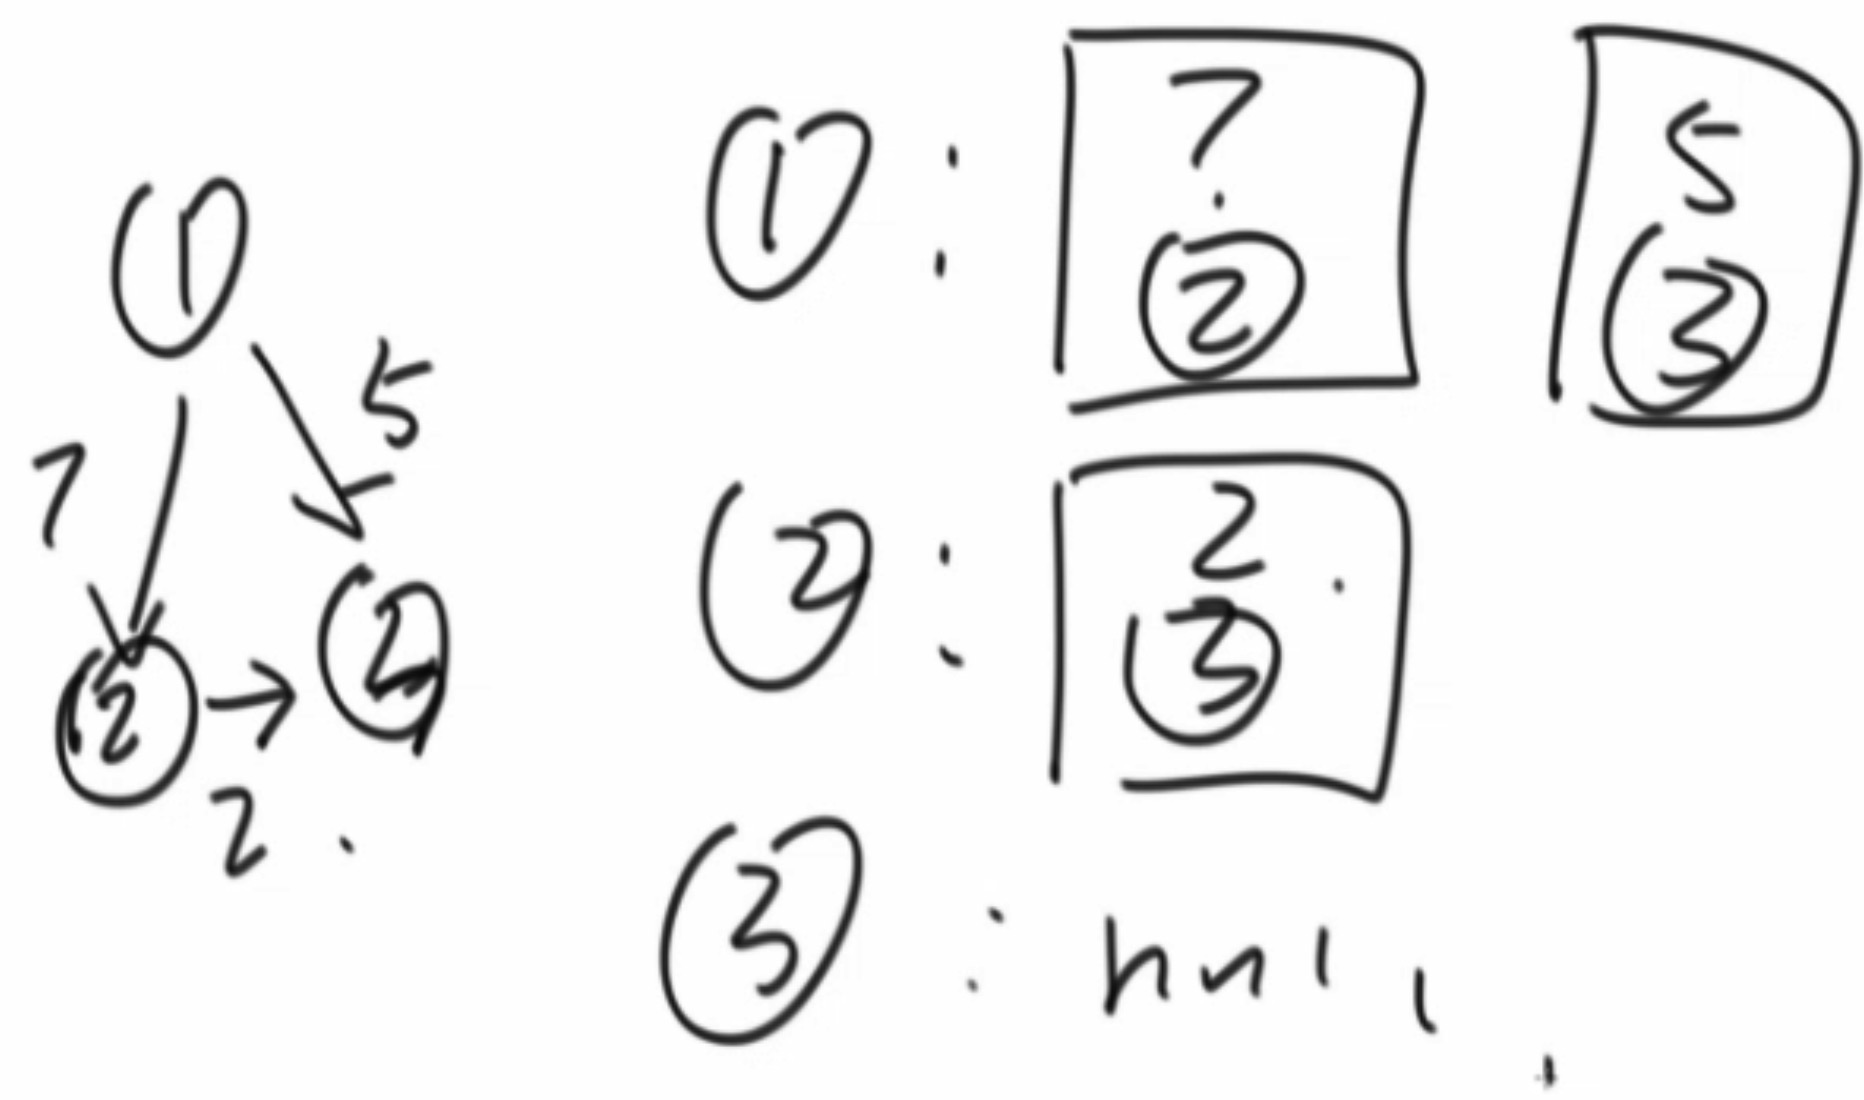 1
5
7
2
2
1 : 7 2 5 3
2 : 2 3
3 : null